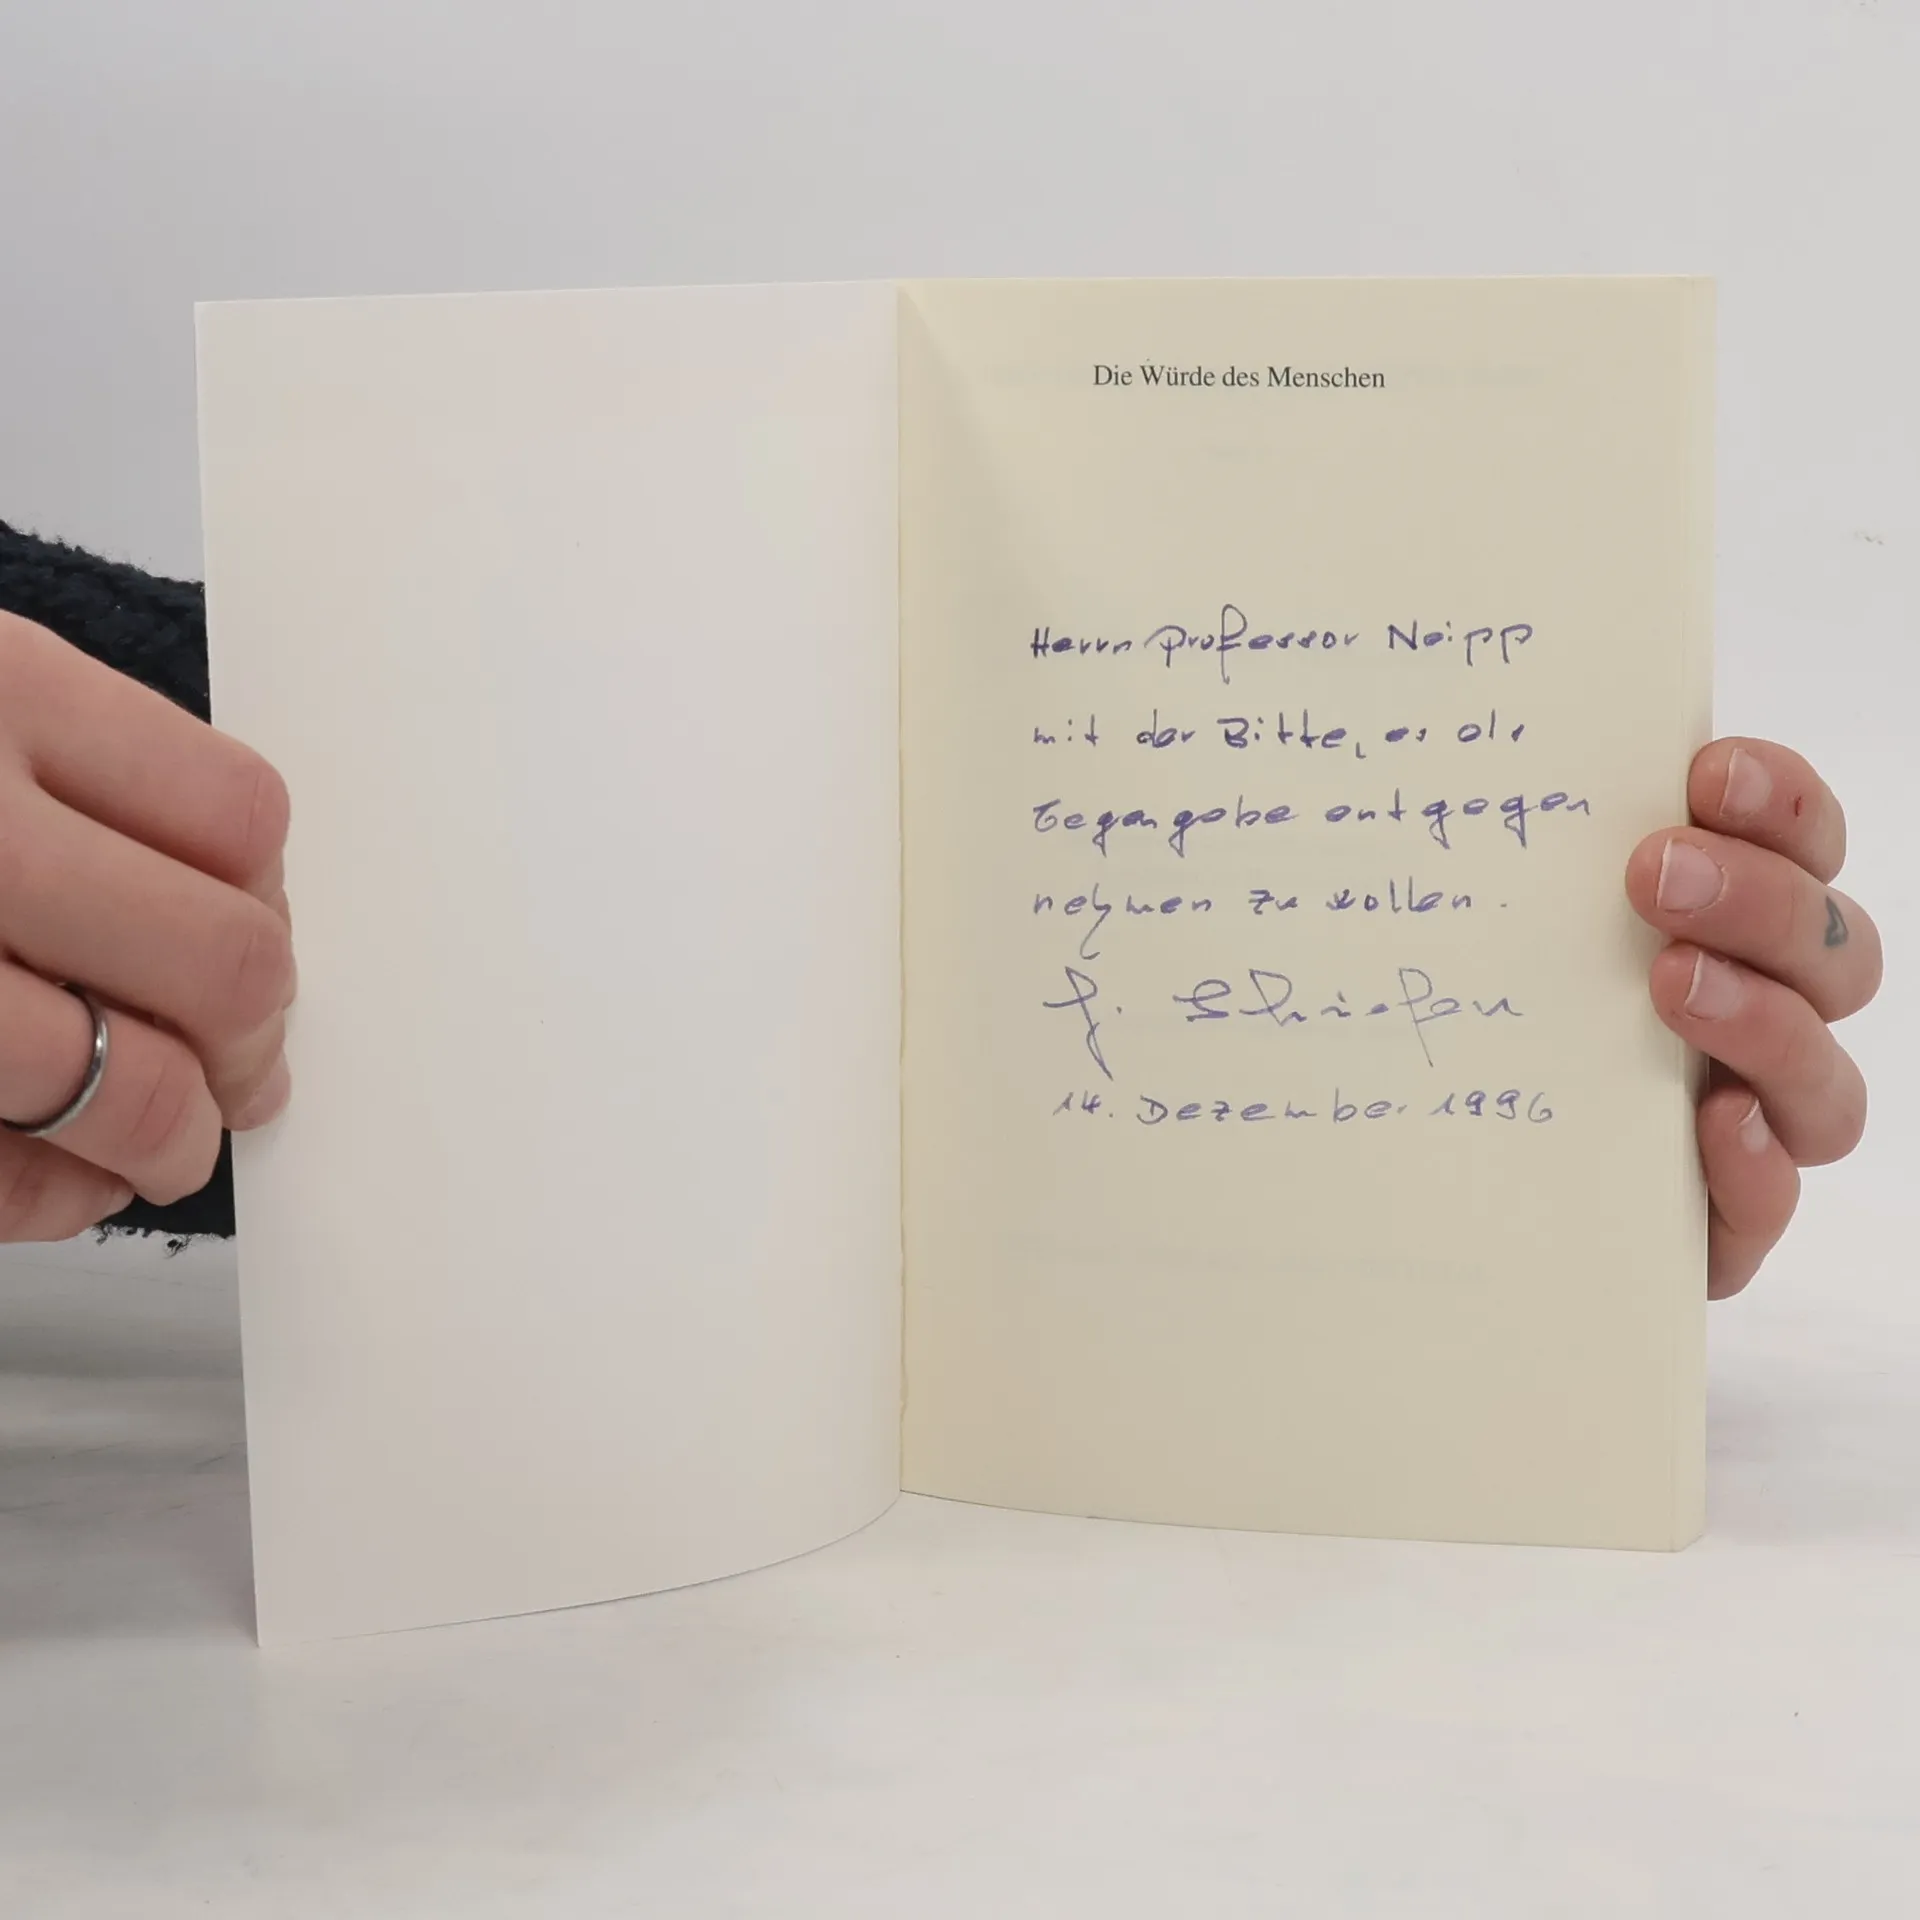 Die Würde des Menschen
Herrn Professor Neipp
mit der Bitte, es als
Gegengabe entgegen
nehmen zu wollen.
14. Dezember 1996